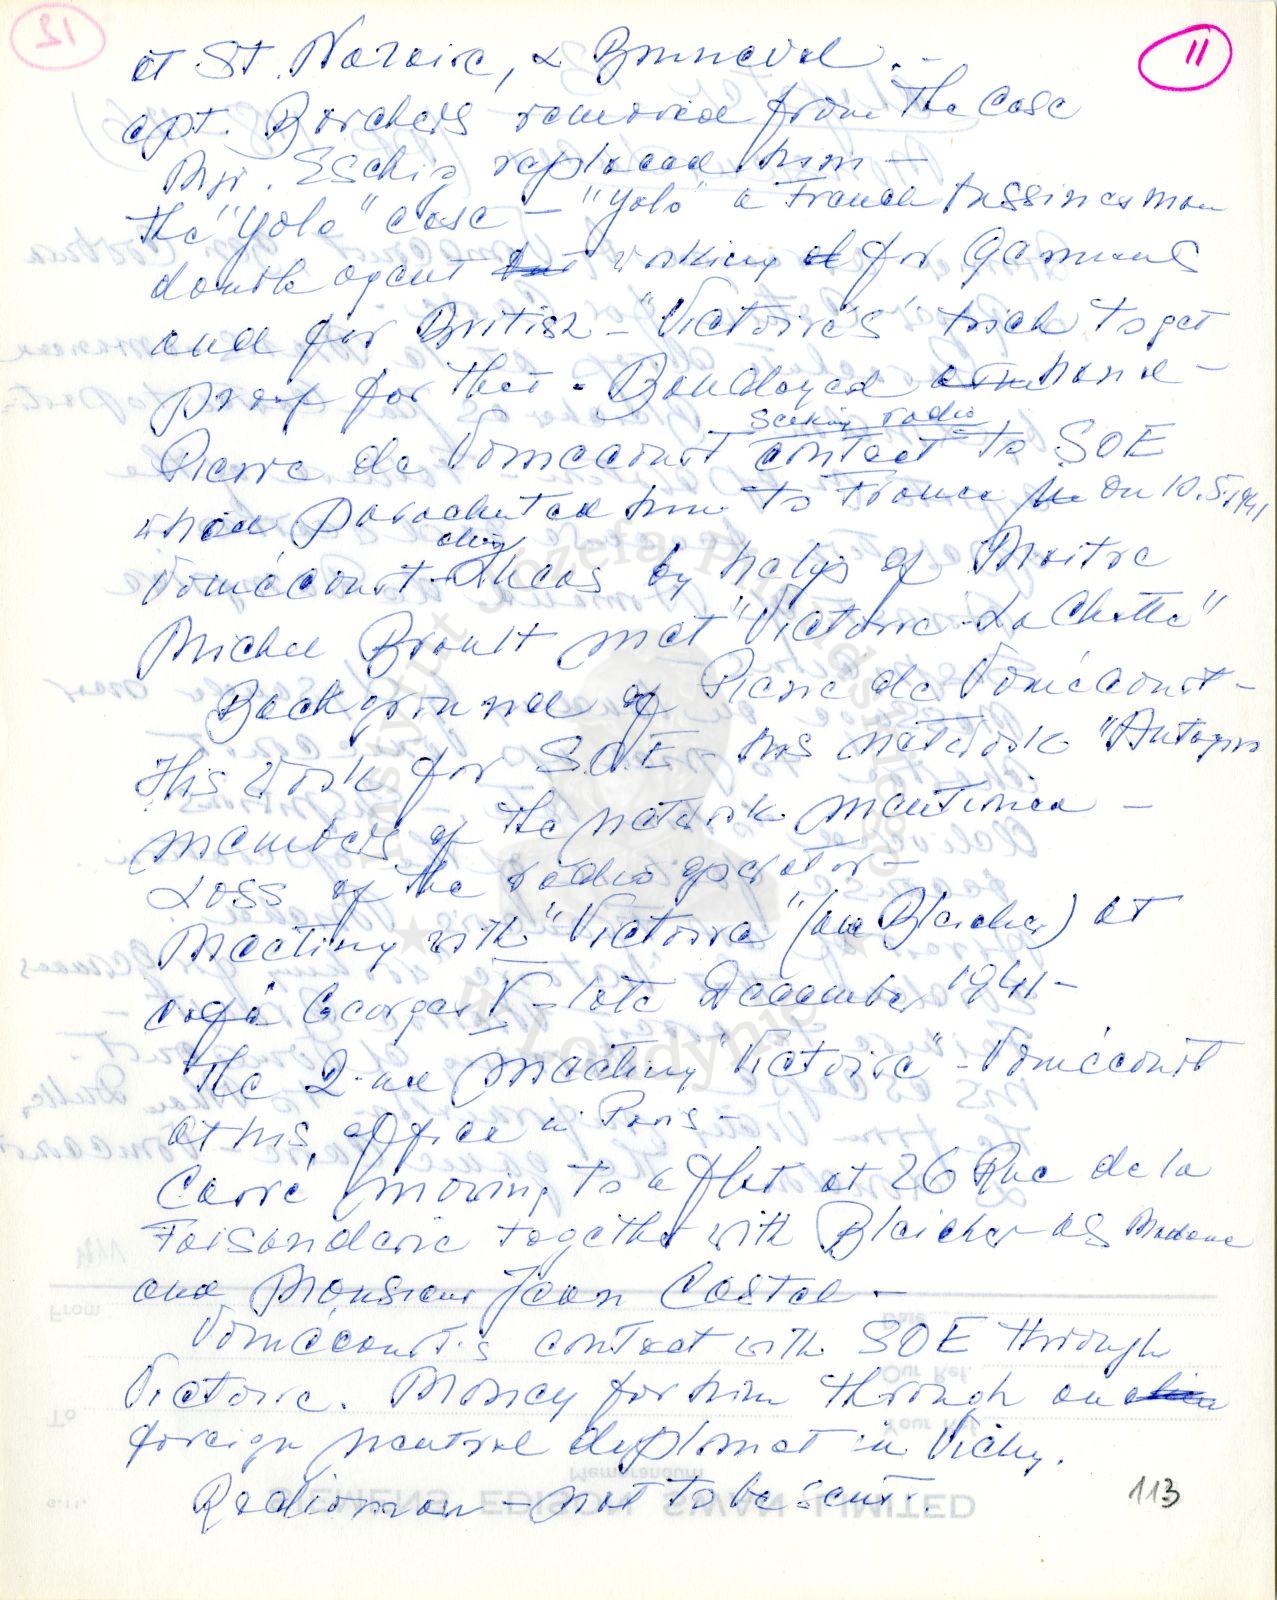 11
at St. Nazaire, & Bruneval.-
cpt. Borchers removed from the case
Mjr. Eschig replaced him -
the "Yolo" case - "Yolo" a French bussinesman
double agent working for Germans
and for British - "Victoire's" trick to get
proof for that. hand -
Pierre de Vomecourt seeking radio contact to SOE
who parachuted him to France on 10.5.1941
Vomécourt - alias Lucas by help of Maitre
Michel Brault met "Victoire - La Chatte"
Background of Pierre de Vomécourt -
His work for S.O.E. - his network "Autogiro
members of the network mentioned -
Loss of the radio operator -
Meeting with "Victoire" (and Bleicher) at
cafe Georges V - late December 1941 -
The 2-nd meeting "Victoire" - Vomécourt
at his office in Paris -
Carré moving to a flat at 26 Rue de la
Faisanderie together with Bleicher as Madame
and Monsieur Jean Castel -
Vomécourt's contact with SOE through
Victoire. Money for him through an
foreign neutral dyplomat in Vichy.
Radioman - not to be sent.
113
Instytut Józefa Piłsudskiego
w Londynie
12
SIEMENS EDISON SWAN LIMITED
Memorandum
From
To
Date
Our Ref.
Your Ref.